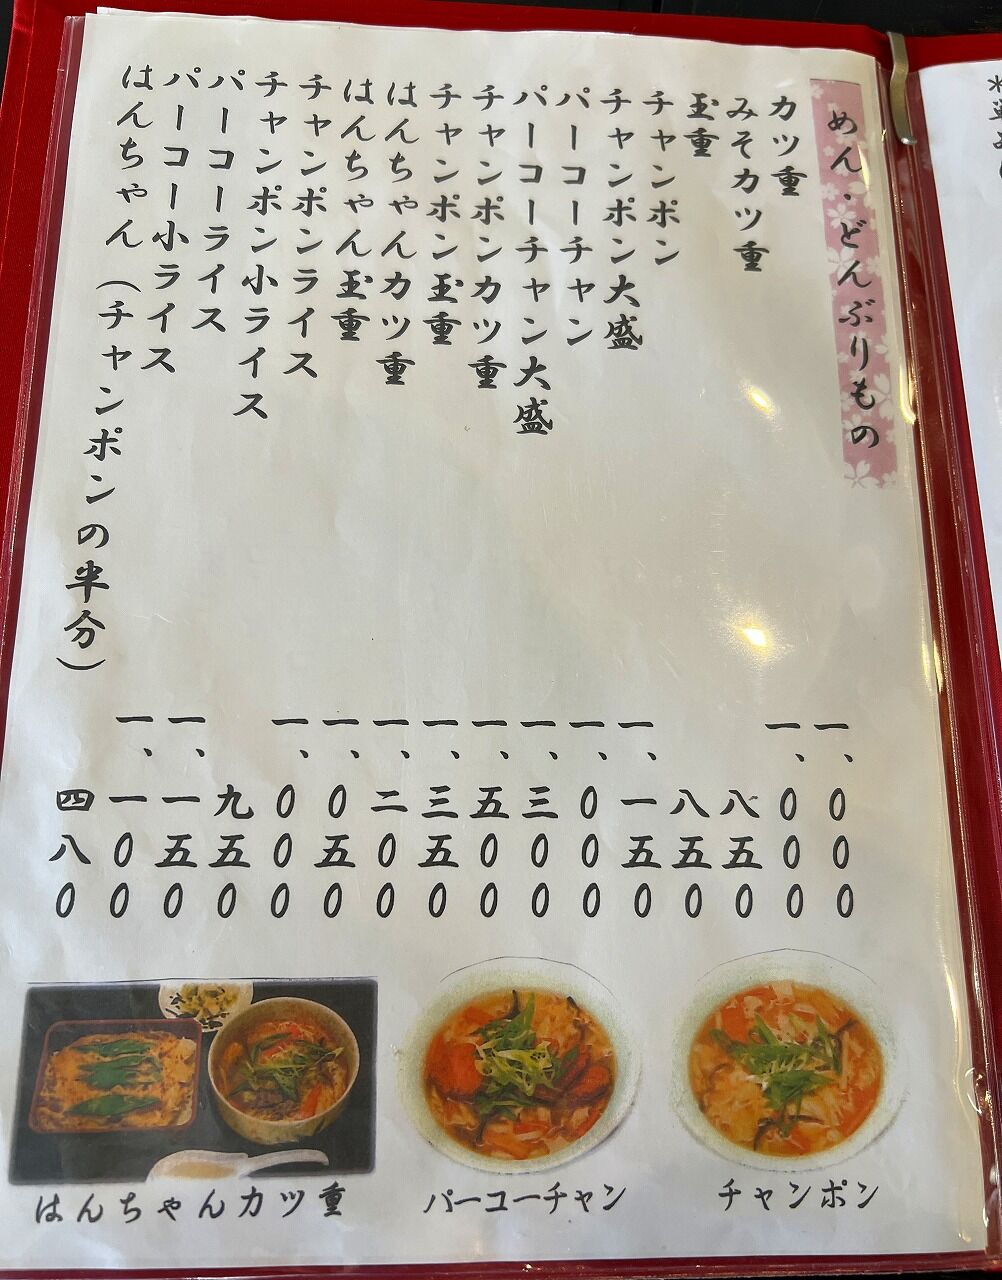 めん・どんぶりもの
カツ重 一、000
みそカツ重 一、000
玉重 八五0
チャンポン 八五0
チャンポン大盛 一、一五0
パーコーチャン 一、000
パーコーチャン大盛 一、三00
チャンポンカツ重 一、五00
チャンポン玉重 一、三五0
はんちゃんカツ重 一、二00
はんちゃん玉重 一、0五0
チャンポンライス 一、000
チャンポン小ライス 九五0
パーコーライス 一、一五0
パーコー小ライス 一、一00
はんちゃん（チャンポンの半分） 四八0
チャンポン
パーコーチャン
はんちゃんカツ重